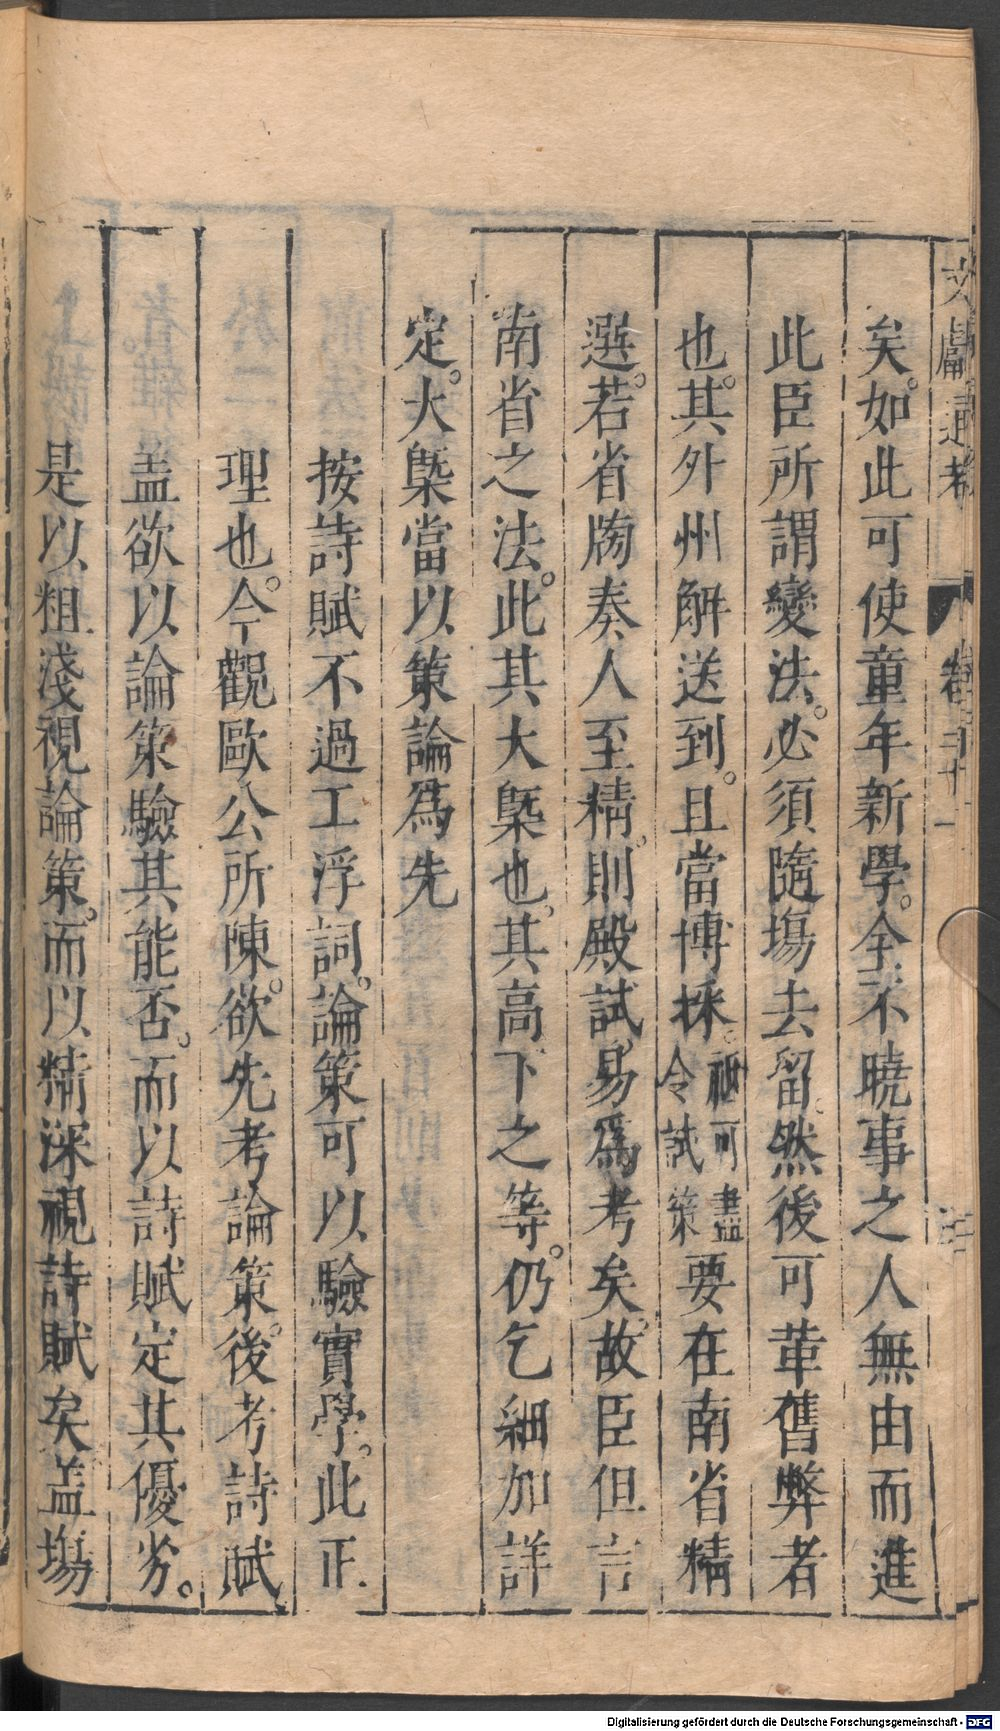 文獻通考 卷三十一
矣。如此可使童年新學。全不曉事之人無由而進
此臣所謂變法。必須隨塲去留。然後可革舊弊者
也。其外州解送到。且當博採。祗可盡令試策要在南省精
選。若省牓奏人至精。則殿試易爲考矣。故臣但言
南省之法。此其大槩也。其高下之等。仍乞細加詳
定。大槩當以策論爲先
按詩賦不過工浮詞。論策可以驗實學。此正
理也。今觀歐公所陳。欲先考論策。後考詩賦
盖欲以論策驗其能否。而以詩賦定其優劣。
是以粗淺視論策。而以精深視詩賦矣盖塲
Digitalisierung gefördert durch die Deutsche Forschungsgemeinschaft - DFG